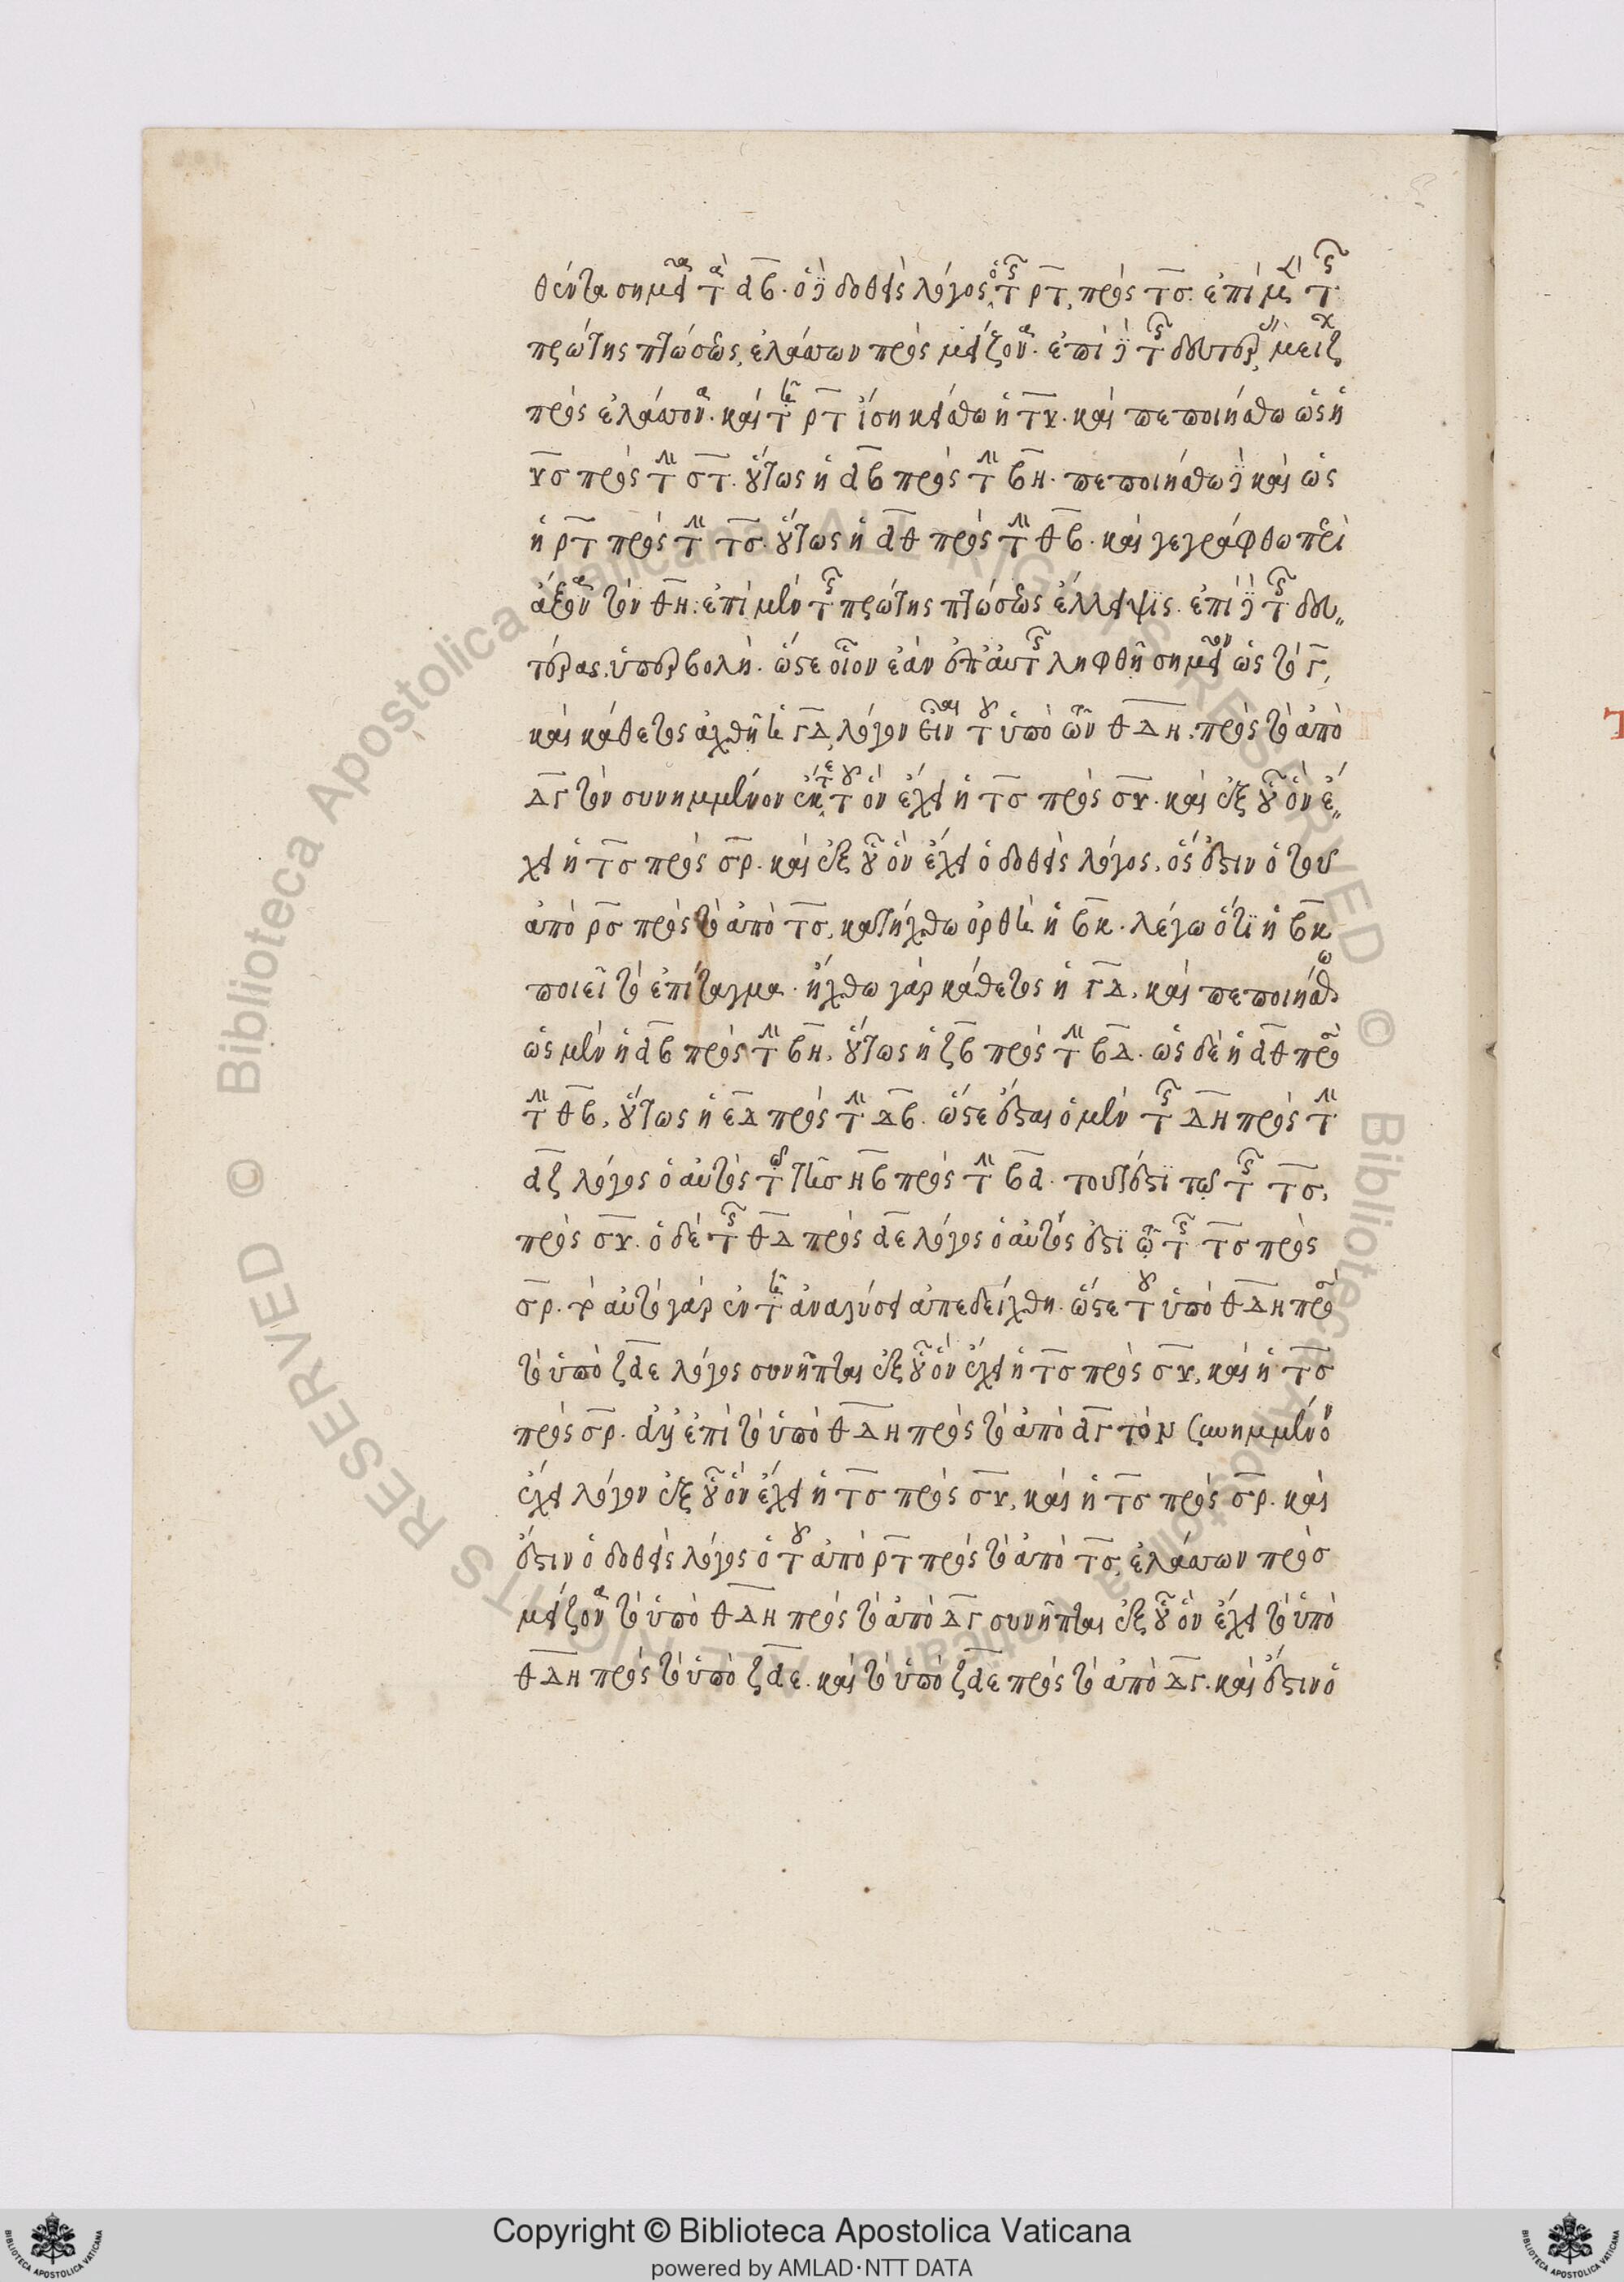 θέντα σημεῖα τὰ αβ. ὁ δὲ δοθεὶς λόγος, ὁ τῆς ρτ, πρὸς τσ. ἐπὶ μὲν τῆς
πρώτης πτώσεως, ἐλάσσων πρὸς μείζονα. ἐπὶ δὲ τῆς δευτέρας, μείζων
πρὸς ἐλάσσονα. καὶ τῇ ρτ ἴση κείσθω ἡ τυ. καὶ πεποιήσθω ὡς ἡ
υσ πρὸς τὴν στ. οὕτως ἡ αβ πρὸς τὴν βη. πεποιήσθω δὲ καὶ ὡς
ἡ ρτ πρὸς τὴν τσ. οὕτως ἡ αθ πρὸς τὴν θβ. καὶ γεγράφθω περὶ
ἄξονα τὸν θη: ἐπὶ μὲν τῆς πρώτης πτώσεως ἔλλειψις. ἐπὶ δὲ τῆς δευ
τέρας, ὑπερβολή. ὥστε οἷον ἐὰν ἐπ' αὐτῆς ληφθῇ σημεῖον ὡς τὸ γ,
καὶ κάθετος ἀχθῇ ἡ γδ, λόγον εἶναι τοῦ ὑπὸ τῶν θδη, πρὸς τὸ ἀπὸ
δγ τὸν συνημμένον ἔκ τε τοῦ ὃν ἔχει ἡ τσ πρὸς συ. καὶ ἐξ οὗ ὃν ἔ
χει ἡ τσ πρὸς σρ. καὶ ἐξ οὗ ὃν ἔχει ὁ δοθεὶς λόγος, ὅς ἐστιν ὁ τοῦ
ἀπὸ ρσ πρὸς τὸ ἀπὸ τσ, κατήχθω ὀρθὴ ἡ βκ. λέγω ὅτι ἡ βκ
ποιεῖ τὸ ἐπίταγμα. ἤχθω γὰρ κάθετος ἡ γδ, καὶ πεποιήσθω
ὡς μὲν ἡ αβ πρὸς τὴν βη, οὕτως ἡ ζβ πρὸς τὴν βδ. ὡς δὲ ἡ αθ πρὸς
τὴν θβ, οὕτως ἡ εδ πρὸς τὴν δβ. ὥστε ἔσται ὁ μὲν τῆς δη πρὸς τὴν
αζ λόγος ὁ αὐτὸς τῷ τῆσ ηβ πρὸς τὴν βα. τουτέστι τῷ τῆς τσ,
πρὸς συ. ὁ δὲ τῆς θδ πρὸς αε λόγος ὁ αὐτός ἐστι τῷ τῆς τσ πρὸς
σρ. τὸ αὐτὸ γὰρ ἐν τῇ ἀναλύσει ἀπεδείχθη. ὥστε τοῦ ὑπὸ θδη πρὸς
τὸ ὑπὸ ζαε λόγος συνῆπται ἐξ οὗ ὃν ἔχει ἡ τσ πρὸς συ, καὶ ἡ τσ
πρὸς σρ. ἀλλ' ἐπεὶ τὸ ὑπὸ θδη πρὸς τὸ ἀπὸ αγ τὸν συνημμένον
ἔχει λόγον ἐξ οὗ ὃν ἔχει ἡ τσ πρὸς συ, καὶ ἡ τσ πρὸς σρ. καὶ
ἔστιν ὁ δοθεὶς λόγος ὁ τοῦ ἀπὸ ρτ πρὸς τὸ ἀπὸ τσ, ἐλάσσων πρὸσ
μείζονα τὸ ὑπὸ θδη πρὸς τὸ ἀπὸ δγ συνῆπται ἐξ οὗ ὃν ἔχει τὸ ὑπὸ
θδη πρὸς τὸ ὑπὸ ζαε. καὶ τὸ ὑπὸ ζαε πρὸς τὸ ἀπὸ δγ. καὶ ἔστιν ὁ
© Biblioteca Apostolica Vaticana ALL RIGHTS RESERVED © Biblioteca Apostolica Vaticana ALL RIGHTS RESERVED
Copyright © Biblioteca Apostolica Vaticana
powered by AMLAD·NTT DATA